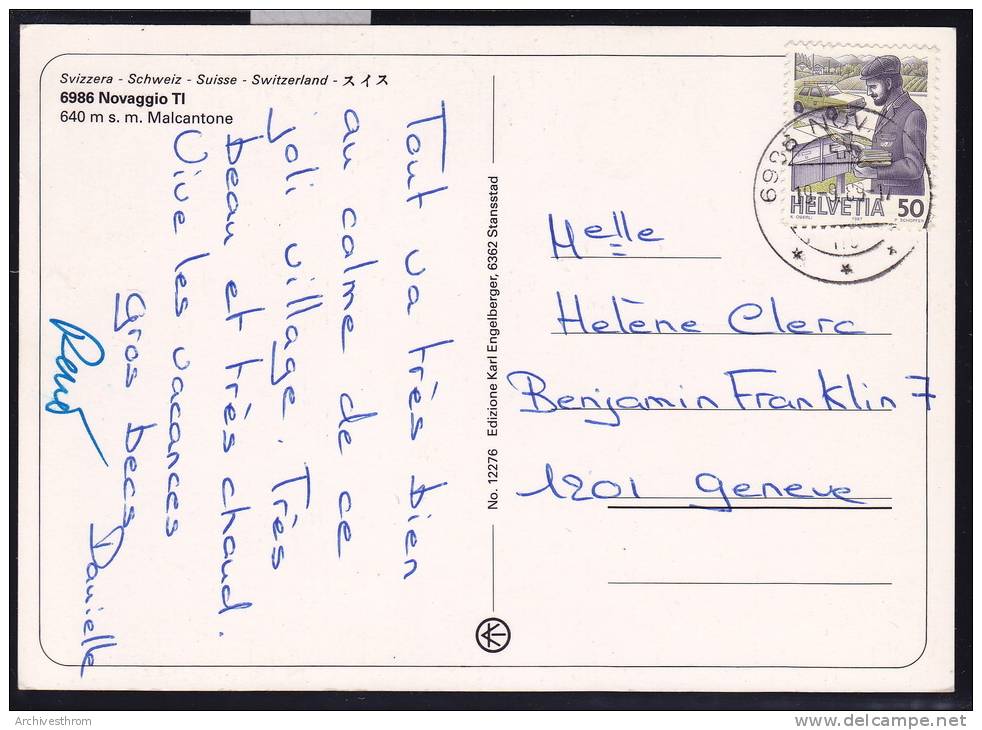 Svizzera - Schweiz - Suisse - Switzerland - スイス
6986 Novaggio TI
640 m s. m. Malcantone
Tout va très bien
au calme de ce
joli village. Très
beau et très chaud.
Vive les vacances
gros becs
Danielle
René
No. 12276 Edizione Karl Engelberger, 6362 Stansstad
HELVETIA 50
K. OBERLI 1987 P. SCHOPFER
6986 NOV
Melle
Helène Clerc
Benjamin Franklin 7
1201 Geneve
Archivesthrom
delcampe.net